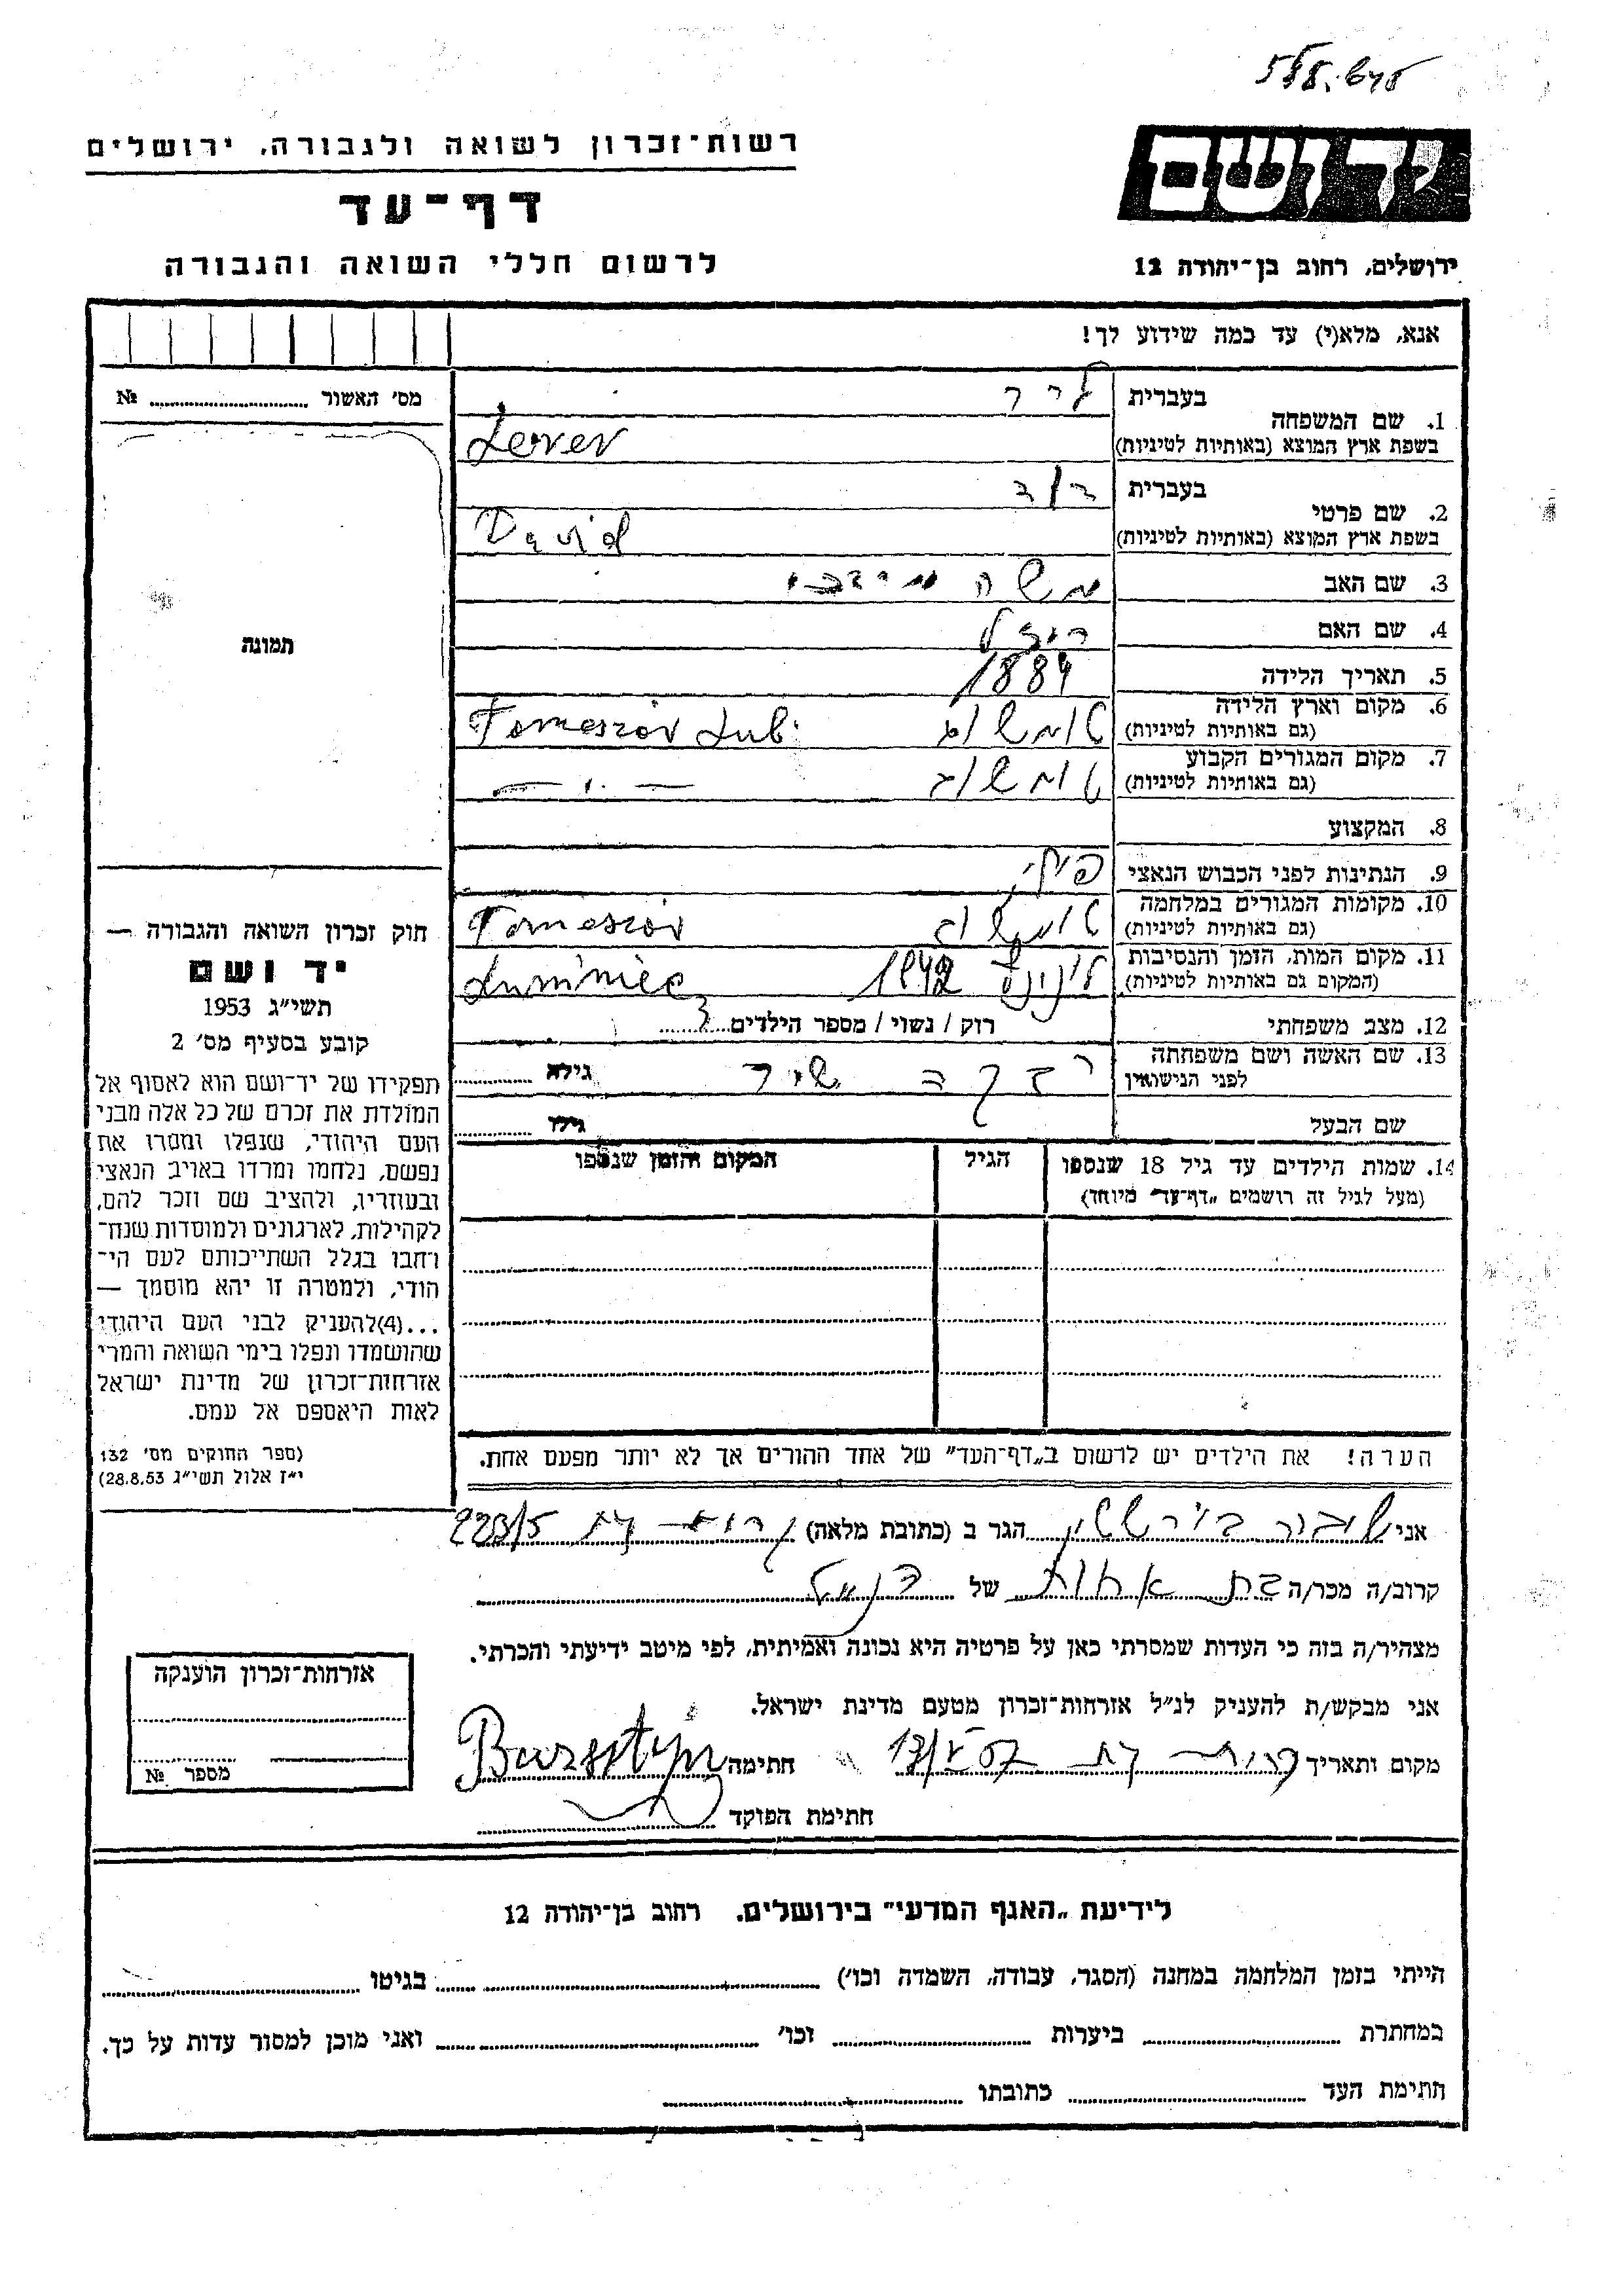 רשות־זכרון לשואה ולגבורה, ירושלים
דף־עד
לרשום חללי השואה והגבורה
יד ושם
ירושלים, רחוב בן־יהודה 12
אנא, מלא(י) עד כמה שידוע לך!
מס׳ האשור № 
תמונה
1. שם המשפחה
בעברית
בשפת ארץ המוצא (באותיות לטיניות)
Lerer
2. שם פרטי
בעברית
דוד
בשפת ארץ המוצא (באותיות לטיניות)
David
3. שם האב משה
4. שם האם
5. תאריך הלידה 1884
6. מקום וארץ הלידה
(גם באותיות לטיניות)
Tomeszów Lub.
7. מקום המגורים הקבוע
(גם באותיות לטיניות)
— " —
8. המקצוע
9. הנתינות לפני הכבוש הנאצי
10. מקומות המגורים במלחמה
(גם באותיות לטיניות)
Tomeszów
11. מקום המות, הזמן והנסיבות
(המקום גם באותיות לטיניות)
1942
Luniniec
12. מצב משפחתי רוק / נשוי / מספר הילדים 3
13. שם האשה ושם משפחתה
לפני הנישואין
רבקה
גילה
שם הבעל
גילו
14. שמות הילדים עד גיל 18 שנספו
(מעל לגיל זה רושמים „דף־עד״ מיוחד)
הגיל
המקום והזמן שנספו
הערה! את הילדים יש לרשום ב„דף־העד״ של אחד ההורים אך לא יותר מפעם אחת.
חוק זכרון השואה והגבורה —
יד ושם
תשי״ג 1953
קובע בסעיף מס׳ 2
תפקידו של יד־ושם הוא לאסוף אל
המולדת את זכרם של כל אלה מבני
העם היהודי, שנפלו ומסרו את
נפשם, נלחמו ומרדו באויב הנאצי
ובעוזריו, ולהציב שם וזכר להם,
לקהילות, לארגונים ולמוסדות שנח־
רבו בגלל השתייכותם לעם הי־
הודי, ולמטרה זו יהא מוסמך —
...(4)להעניק לבני העם היהודי
שהושמדו ונפלו בימי השואה והמרי
אזרחות־זכרון של מדינת ישראל
לאות היאספם אל עמם.
(ספר החוקים מס׳ 132
י״ז אלול תשי״ג 28.8.53)
אני הגר ב (כתובת מלאה) 223/5
קרוב/ה מכר/ה בת אחות של
מצהיר/ה בזה כי העדות שמסרתי כאן על פרטיה היא נכונה ואמיתית, לפי מיטב ידיעתי והכרתי.
אני מבקש/ת להעניק לנ״ל אזרחות־זכרון מטעם מדינת ישראל.
מקום ותאריך חתימה Bursztyn
חתימת הפוקד
אזרחות־זכרון הוענקה
מספר №
לידיעת „האגף המדעי״ בירושלים, רחוב בן־יהודה 12
הייתי בזמן המלחמה במחנה (הסגר, עבודה, השמדה וכו׳) בגיטו
במחתרת ביערות וכו׳ ואני מוכן למסור עדות על כך.
חתימת העד כתובתו